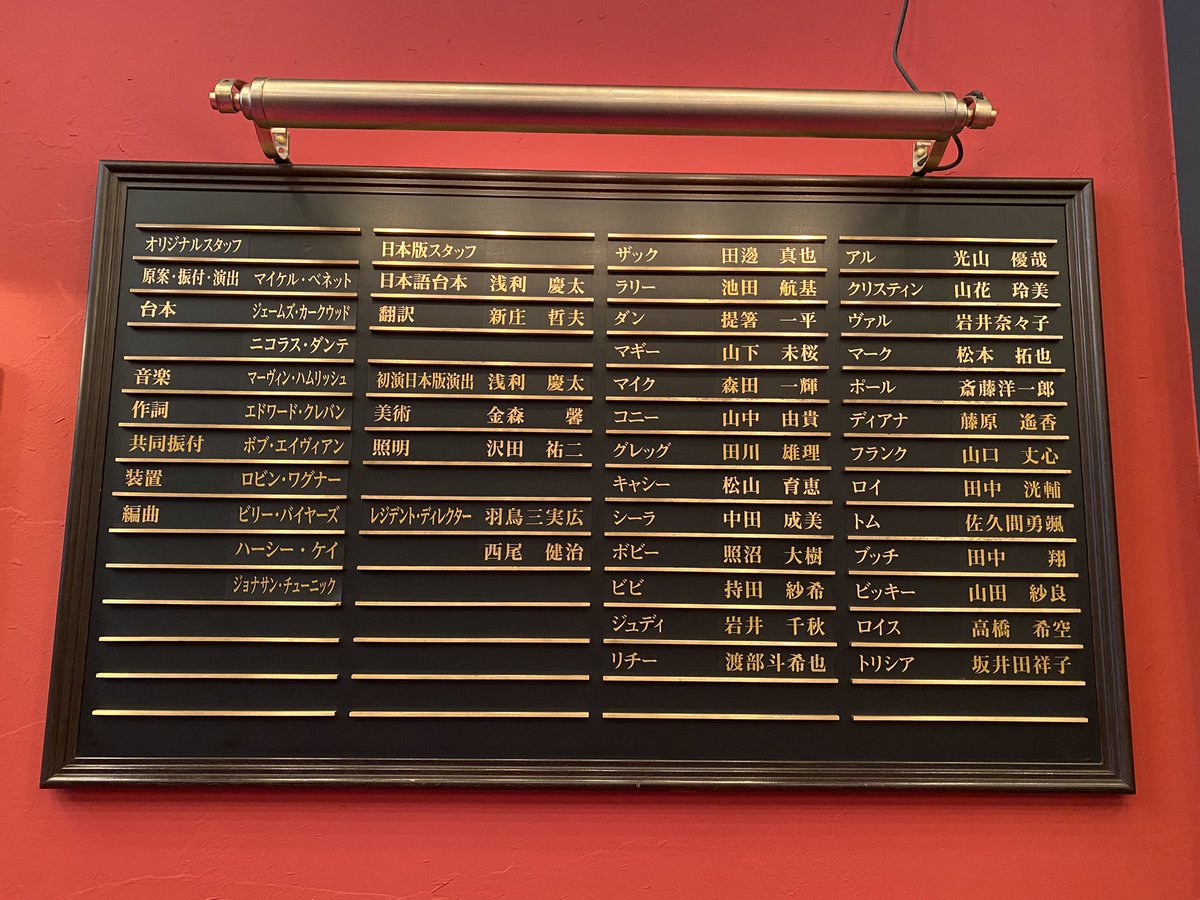 オリジナルスタッフ
原案・振付・演出 マイケル・ベネット
台本 ジェームズ・カークウッド
ニコラス・ダンテ
音楽 マーヴィン・ハムリッシュ
作詞 エドワード・クレバン
共同振付 ボブ・エイヴィアン
装置 ロビン・ワグナー
編曲 ビリー・バイヤーズ
ハーシー・ケイ
ジョナサン・チューニック
日本版スタッフ
日本語台本 浅利 慶太
翻訳 新庄 哲夫
初演日本版演出 浅利 慶太
美術 金森 馨
照明 沢田 祐二
レジデント・ディレクター 羽鳥三実広
西尾 健治
ザック 田邊 真也
ラリー 池田 航基
ダン 提箸 一平
マギー 山下 未桜
マイク 森田 一輝
コニー 山中 由貴
グレッグ 田川 雄理
キャシー 松山 育恵
シーラ 中田 成美
ボビー 照沼 大樹
ビビ 持田 紗希
ジュディ 岩井 千秋
リチー 渡部斗希也
アル 光山 優哉
クリスティン 山花 玲美
ヴァル 岩井奈々子
マーク 松本 拓也
ポール 斎藤洋一郎
ディアナ 藤原 遙香
フランク 山口 丈心
ロイ 田中 滉輔
トム 佐久間勇颯
ブッチ 田中 翔
ビッキー 山田 紗良
ロイス 高橋 希空
トリシア 坂井田祥子